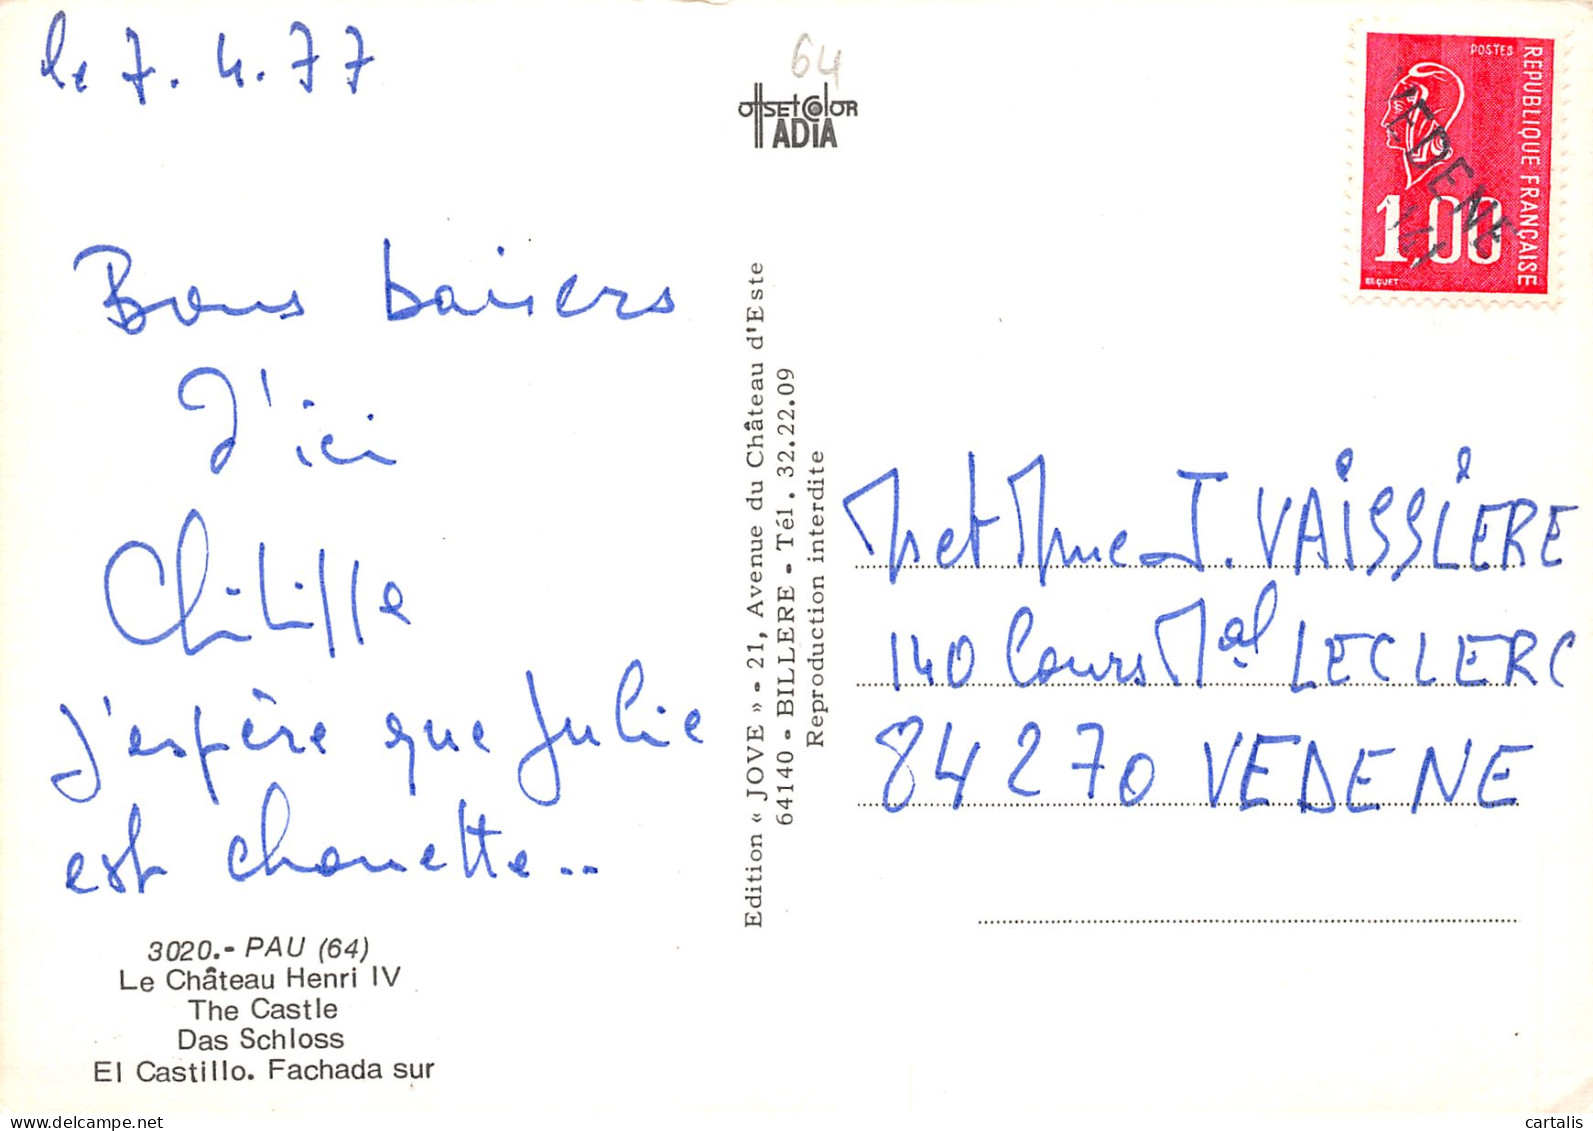 le 7.4.77
Bons baisers
d'ici
J'espère que Julie
est chouette..
3020.- PAU (64)
Le Château Henri IV
The Castle
Das Schloss
El Castillo. Fachada sur
64
OffsetColor
ADIA
Edition « JOVE » - 21, Avenue du Château d'Este
64140 - BILLERE - Tél. 32.22.09
Reproduction interdite
POSTES
REPUBLIQUE FRANÇAISE
1.00
BEQUET
VEDENE
M et Mme J. VAISSIERE
140 Cours Mal LECLERC
84270 VEDENE
cartalis
delcampe.net